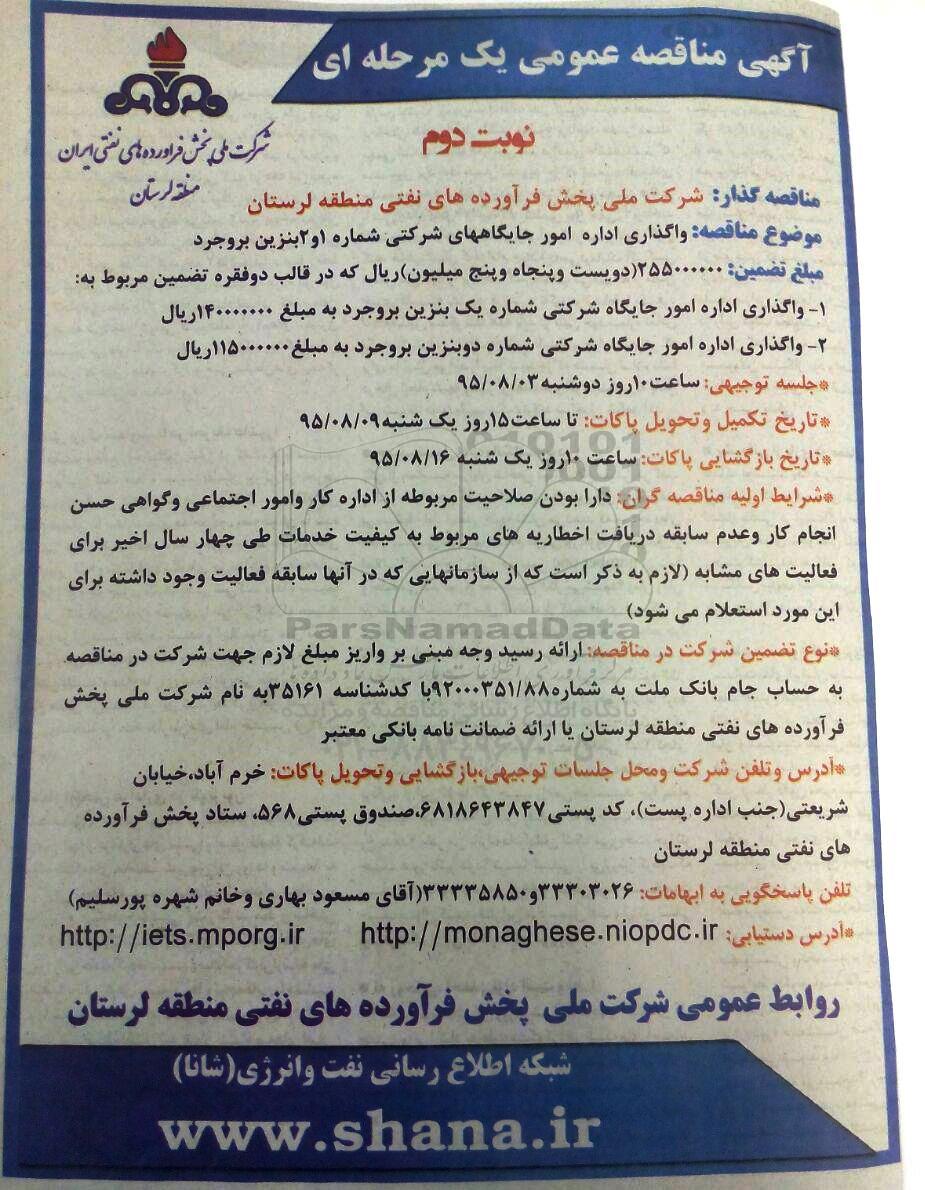 آگهی مناقصه عمومی یک مرحله ای
شرکت ملی پخش فرآورده های نفتی ایران
منطقه لرستان
نوبت دوم
مناقصه گذار: شرکت ملی پخش فرآورده های نفتی منطقه لرستان
موضوع مناقصه: واگذاری اداره امور جایگاههای شرکتی شماره ۱و۲بنزین بروجرد
مبلغ تضمین: ۲۵۵۰۰۰۰۰۰(دویست وپنجاه وپنج میلیون)ریال که در قالب دوفقره تضمین مربوط به:
۱- واگذاری اداره امور جایگاه شرکتی شماره یک بنزین بروجرد به مبلغ ۱۴۰۰۰۰۰۰۰ریال
۲- واگذاری اداره امور جایگاه شرکتی شماره دوبنزین بروجرد به مبلغ۱۱۵۰۰۰۰۰۰ریال
*جلسه توجیهی: ساعت۱۰روز دوشنبه۹۵/۰۸/۰۳
*تاریخ تکمیل وتحویل پاکات: تا ساعت۱۵روز یک شنبه۹۵/۰۸/۰۹
*تاریخ بازگشایی پاکات: ساعت ۱۰روز یک شنبه ۹۵/۰۸/۱۶
*شرایط اولیه مناقصه گران: دارا بودن صلاحیت مربوطه از اداره کار وامور اجتماعی وگواهی حسن
انجام کار وعدم سابقه دریافت اخطاریه های مربوط به کیفیت خدمات طی چهار سال اخیر برای
فعالیت های مشابه (لازم به ذکر است که از سازمانهایی که در آنها سابقه فعالیت وجود داشته برای
این مورد استعلام می شود)
ParsNamadData
*نوع تضمین شرکت در مناقصه: ارائه رسید وجه مبنی بر واریز مبلغ لازم جهت شرکت در مناقصه
به حساب جام بانک ملت به شماره۹۲۰۰۰۳۵۱/۸۸با کدشناسه ۳۵۱۶۱به نام شرکت ملی پخش
فرآورده های نفتی منطقه لرستان یا ارائه ضمانت نامه بانکی معتبر
*آدرس وتلفن شرکت ومحل جلسات توجیهی،بازگشایی وتحویل پاکات: خرم آباد،خیابان
شریعتی(جنب اداره پست)، کد پستی۶۸۱۸۶۴۳۸۴۷،صندوق پستی۵۶۸، ستاد پخش فرآورده
های نفتی منطقه لرستان
تلفن پاسخگویی به ابهامات: ۳۳۳۰۳۰۲۶و۳۳۳۳۵۸۵۰(آقای مسعود بهاری وخانم شهره پورسلیم)
*آدرس دستیابی: http://monaghese.niopdc.ir http://iets.mporg.ir
روابط عمومی شرکت ملی پخش فرآورده های نفتی منطقه لرستان
شبکه اطلاع رسانی نفت وانرژی(شانا)
www.shana.ir